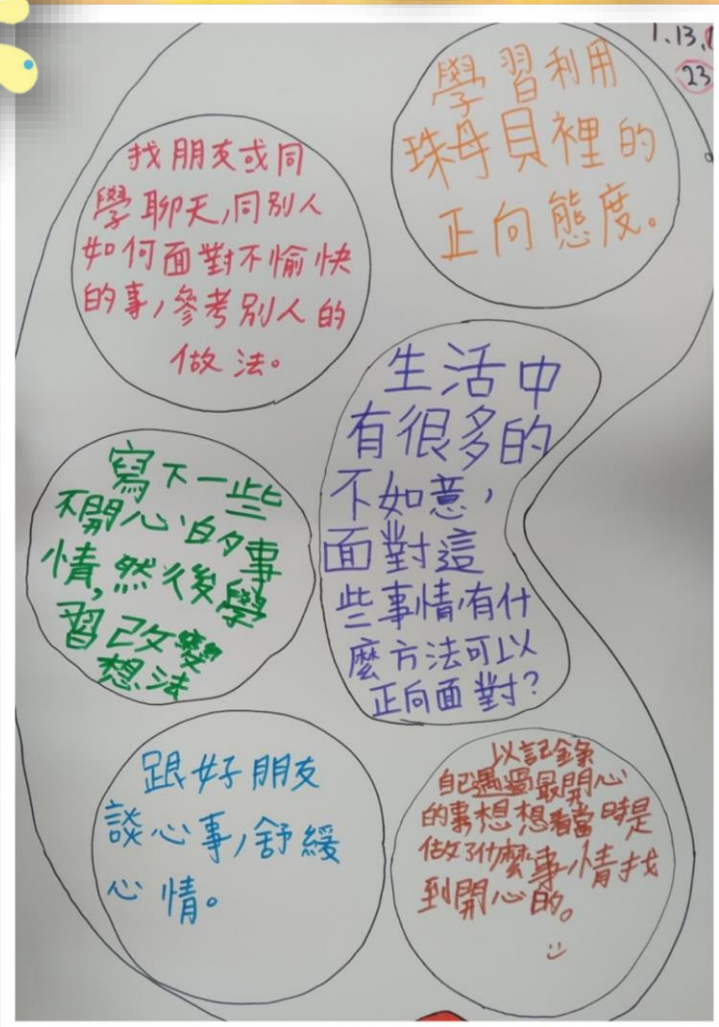 1.13.
23
學習利用
珠母貝裡的
正向態度。
找朋友或同
學聊天,同別人
如何面對不愉快
的事,參考別人的
做法。
生活中
有很多的
不如意,
面對這
些事情,有什
麼方法可以
正向面對?
寫下一些
不開心的事
情,然後學
習改變
想法
跟好朋友
談心事,舒緩
心情。
以記錄
自己遇過最開心
的事想想看當時是
做了什麼事情找
到開心的。